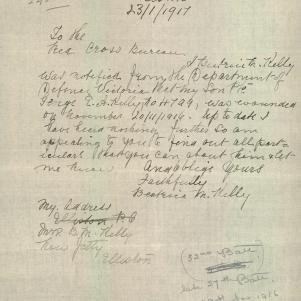 23/1/1917
To the
Red Cross Bureau
I Beatrice M. Kelly
was notified from the Department of
Defence Victoria that my Son Pte
George E. A. Kelly, No 4729, was wounded
on November 20/11/1916. Up to date I
have heard nothing further so am
appealing to you to find out all part-
iculars that you can about him & let
me know. And oblige Yours
Faithfully
Beatrice M. Kelly
My address
Elliston P.O
Mrs B. M. Kelly
Near Jetty
Elliston
32nd Batt
late 27th Batt